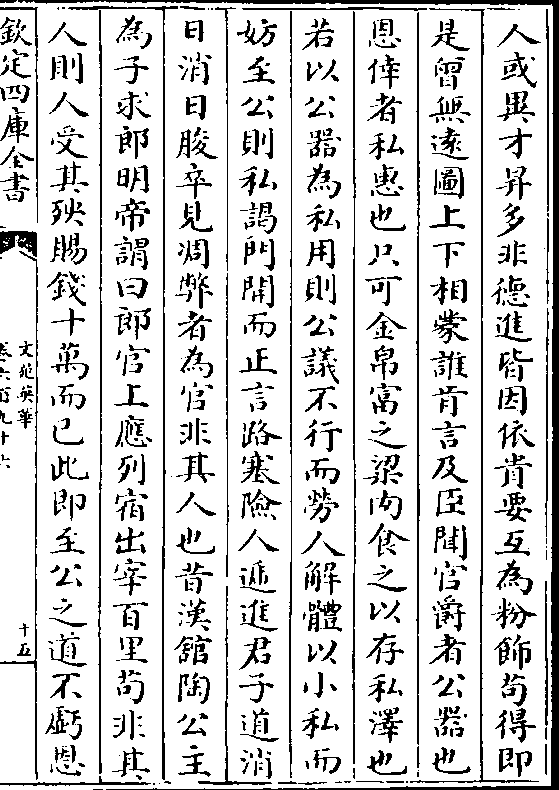 人或異才昇多非德進皆因依貴要互為粉飾茍得即
是曾無逺圖上下相蒙誰肯言及臣聞官爵者公器也
恩倖者私惠也只可金帛富之粱肉食之以存私澤也
若以公器為私用則公議不行而勞人解體以小私而
妨至公則私謁門開而正言路塞險人遞進君子道消
日消日朘卒見凋弊者為官非其人也昔漢舘陶公主
為子求郎明帝謂曰郎官上應列宿出宰百里茍非其
人則人受其殃賜錢十萬而已此即至公之道不虧恩
欽定四庫全書
文苑英華
卷六百九十六
十五